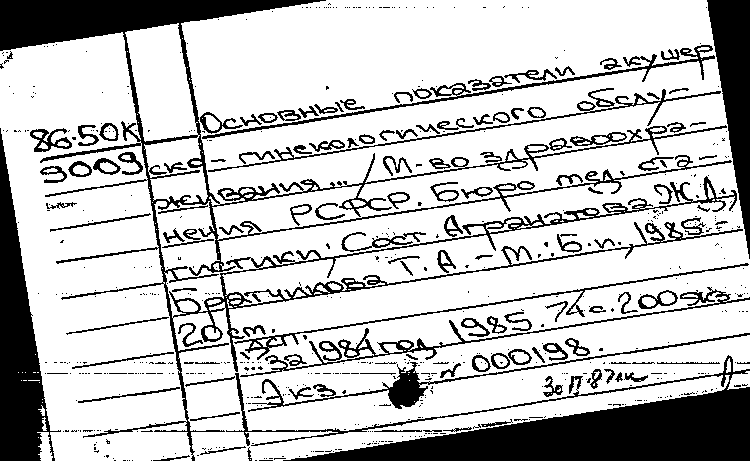 86.50К Основные показатели акушер
9009 ско-гинекологического обслу-
живания... / М-во здравоохра-
нения РСФСР. Бюро мед. ста-
тистики; Сост. Агранатова Ж.Д.,
Братчикова Т.А. - М.: Б.и., 1985 -
20 см.
ДСП.
...за 1984 год. 1985. 74 с. 200 экз.
Экз. № 000198.